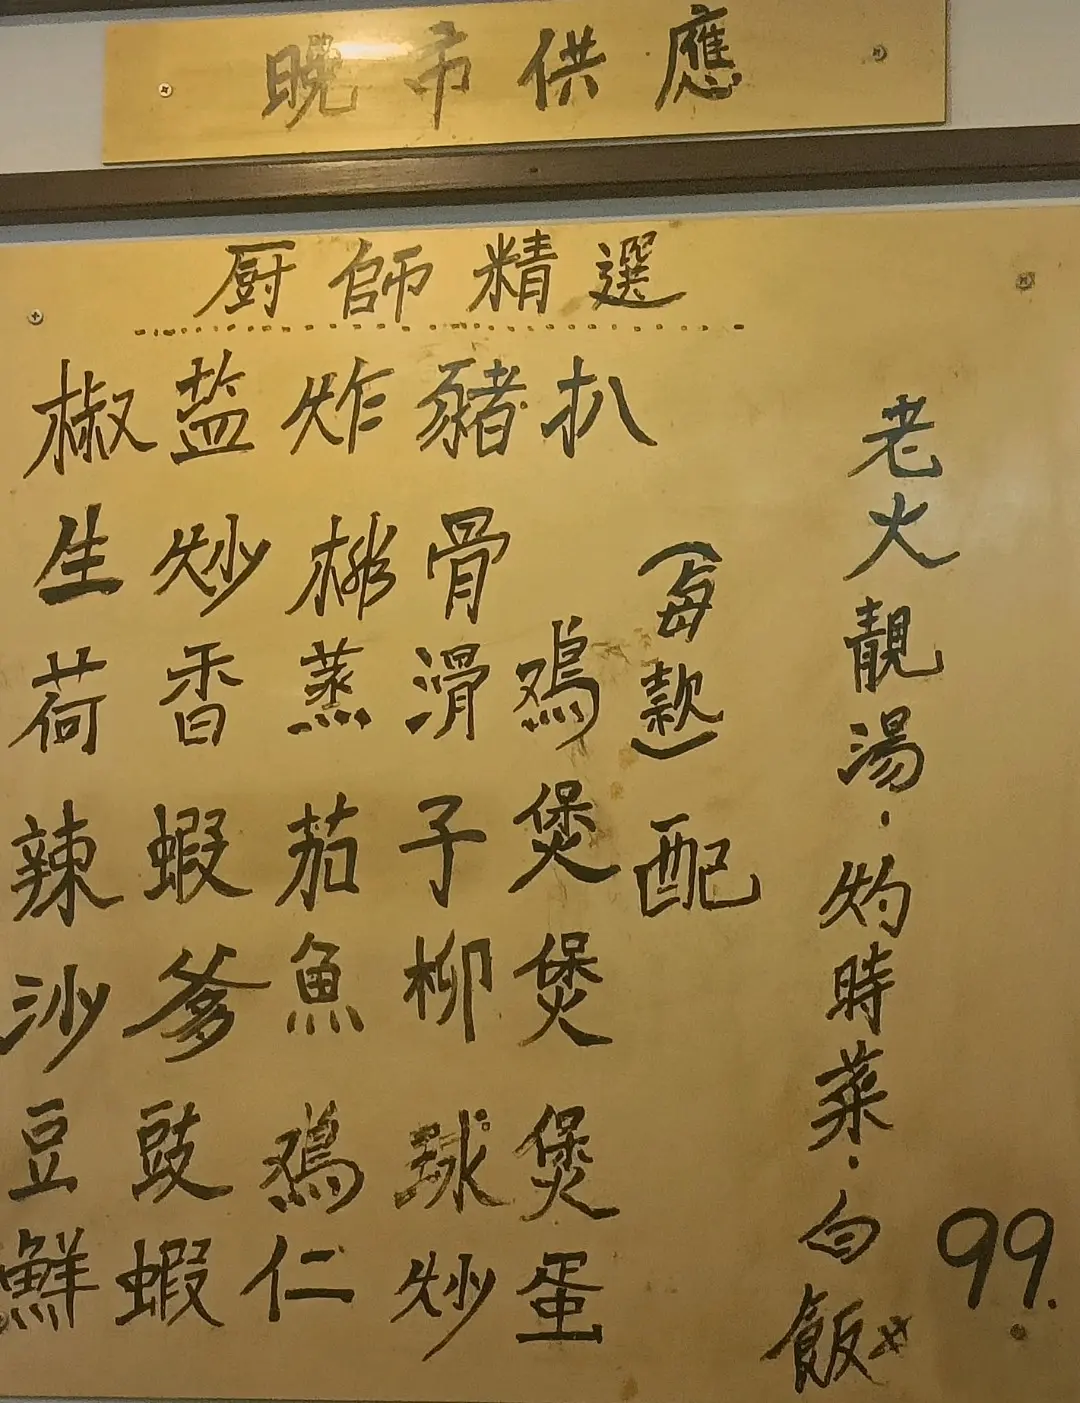 晚市供應
厨師精選
椒盐炸豬扒
生炒排骨
荷香蒸滑鸡
辣蝦茄子煲
沙爹魚柳煲
豆豉鸡球煲
鮮蝦仁炒蛋
(每款)配
老火靚湯.灼時菜.白飯
99.